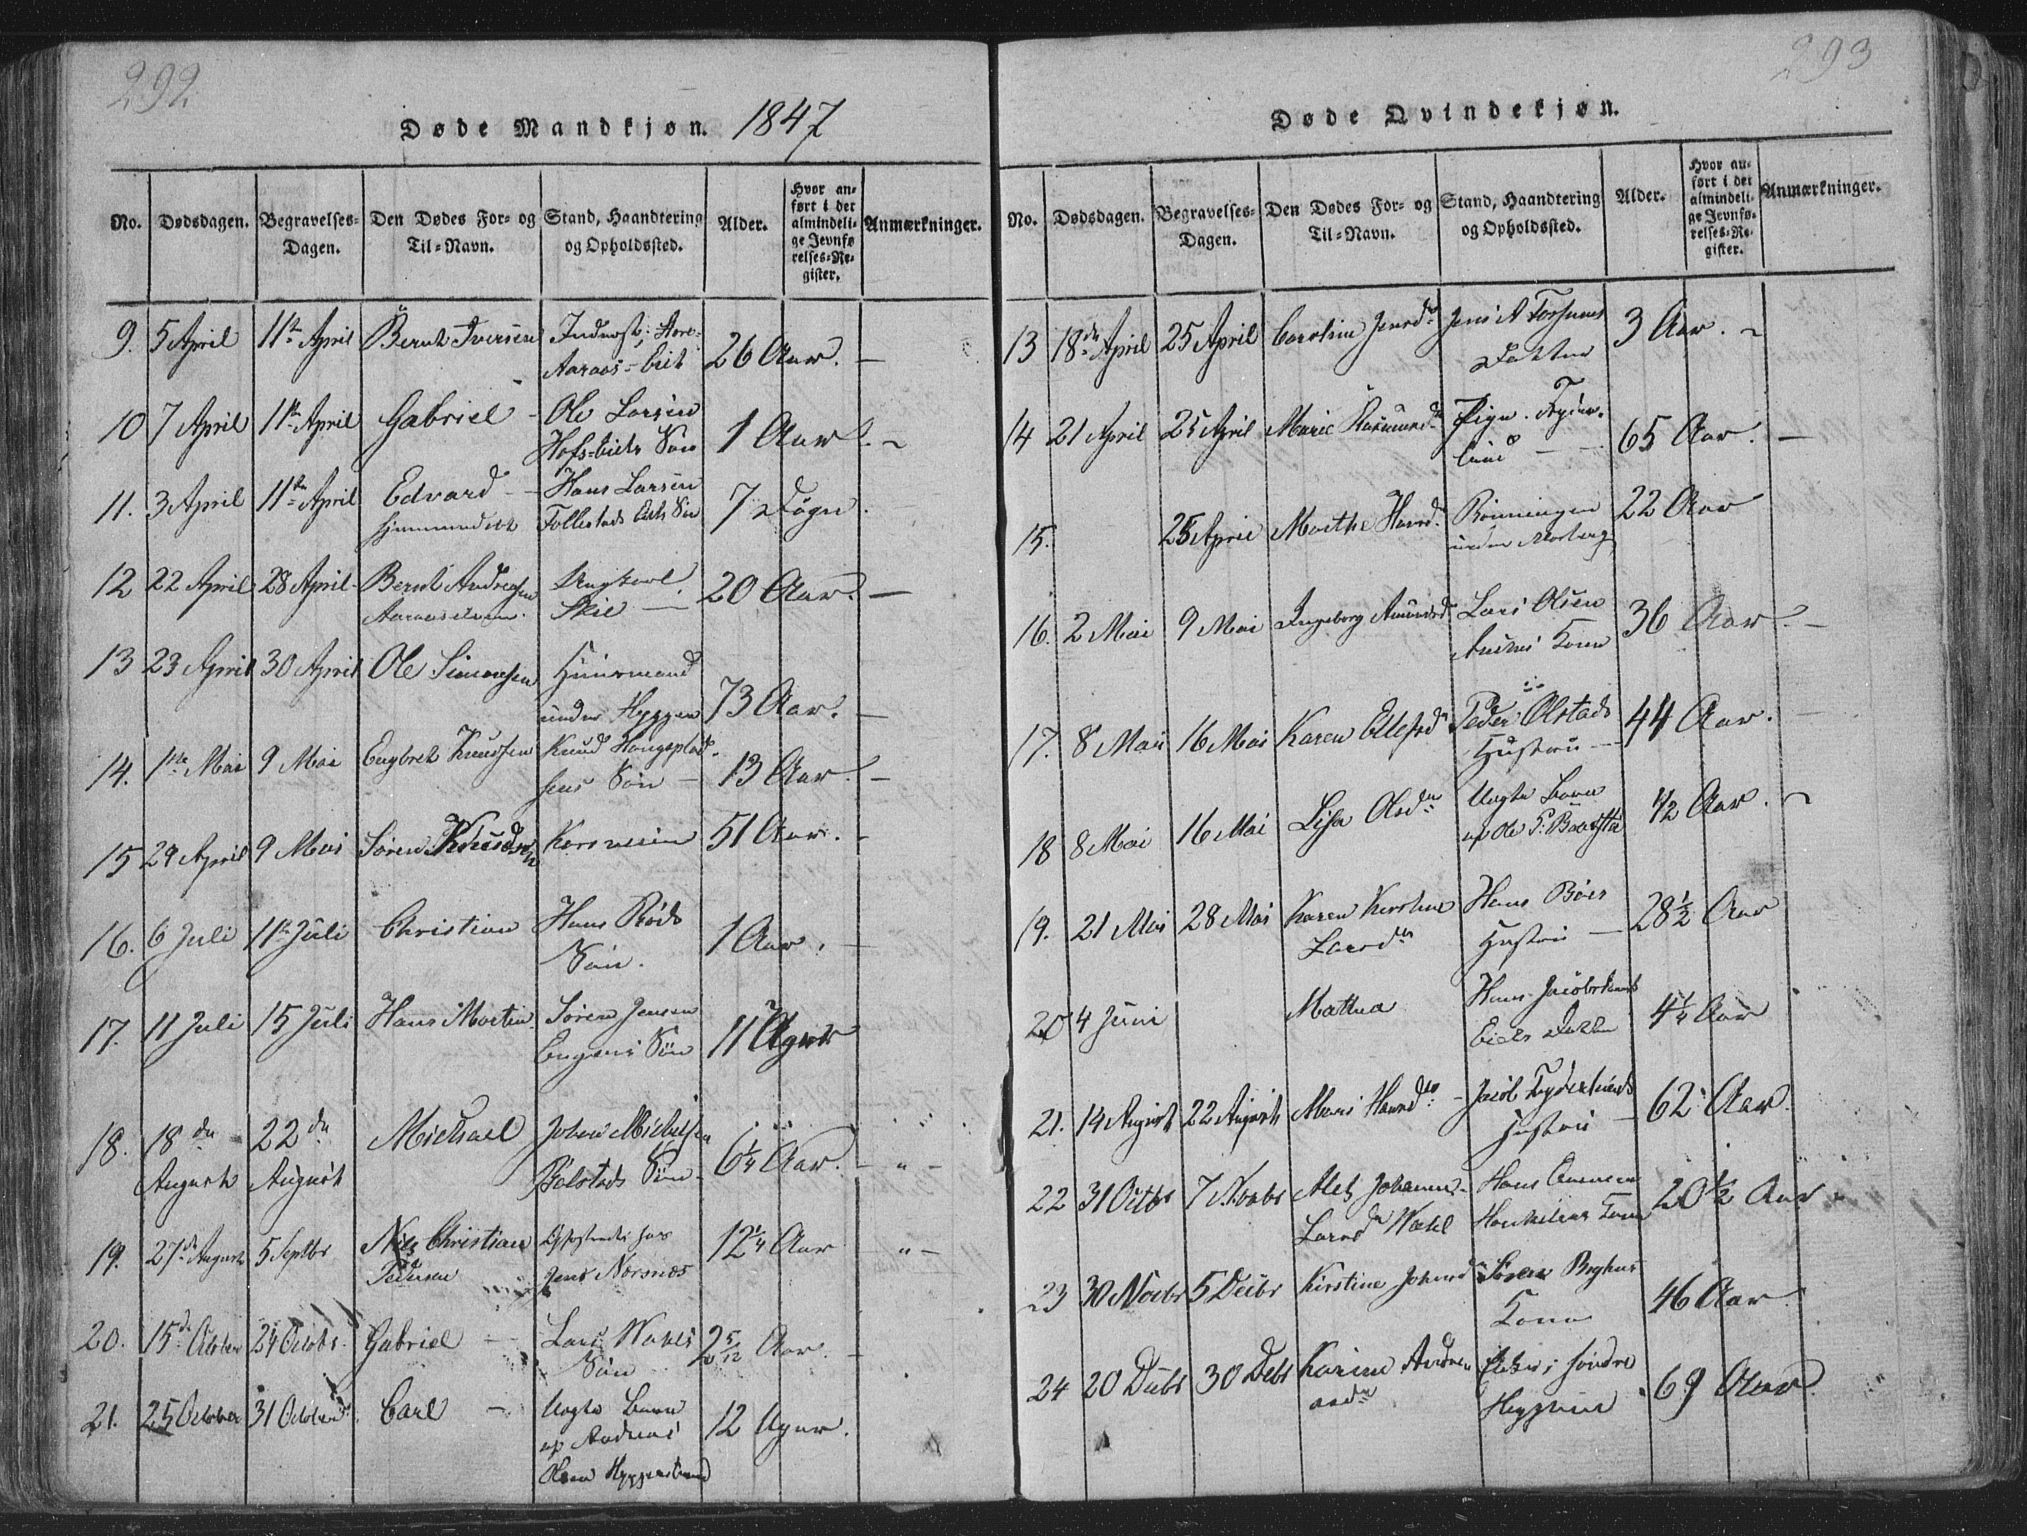 292
Døde Mandkjøn. 1847
No.
Dødsdagen.
Begravelses-
Dagen.
Den Dødes For- og
Til-Navn.
Stand, Haandtering
og Opholdssted.
Alder.
Hvor an-
ført i det
almindeli-
ge Jevnfø
relses-Re-
gister.
Anmærkninger.
9. 5 April 11te April Bernt Iversen
Aaraas-Eiet 26 Aar. —
10 7 April 11te April Gabriel - Ole Larsen
Hofs-Eiets Søn 1 Aar. ~
11. 3 April 11te April Edvard - Hans Larsen
hjemmedøbt Follestads Eiets Søn 7 Døgn.
12 22 April 28 April Bernt Andresen Ungkarl.
Skie — 20 Aar. —
13 23 April 30 April Ole Simonsen Huusmand
under Hyggen 73 Aar. —
14. 1ste Mai 9 Mai Engbret Knudsen Knud Haugsplads-
Søn — 13 Aar. —
15 29 April 9 Mai Søren Knudsen 51 Aar. -
16. 6 Juli 11te Juli Christian Hans Røds
Søn. 1 Aar. —
17. 11 Juli 15 Juli Hans Martin Søren Jensen
Engens Søn 11 Uger
18. 18de 22de Michael Johan Michelsen
August August Bølstads Søn 6 1/4 Aar. — " —
19. 27de August 5 Septbr Niels Christian
Pedersen Jens Norsnæs 12 1/4 Aar — " —
20. 15de October 24 Octobr. Gabriel — Lars Wahls
Søn 2 5/12 Aar. —
21. 25 October 31 October Carl — Uægte Barn
af Andreas
Olsen Hyggenstrand 12 Uger.
293
Døde Qvindekjøn.
No.
Dødsdagen.
Begravelses-
Dagen.
Den Dødes For- og
Til-Navn.
Stand, Haandtering
og Opholdssted.
Alder.
Hvor an-
ført i det
almindeli-
ge Jevnfø-
relses-Re-
gister.
Anmærkninger.
13 18de April 25 April Caroline Jensdr Jens A
Datter 3 Aar. ~
14 21 April 25 April Marie Pige.
65 Aar. —
15. 25 April Marthe Hansd. Rønningen
under 22 Aar
16. 2 Mai 9 Mai Ingeborg Amundsd. Lars Olsen
Kone 36 Aar. —
17. 8 Mai 16 Mai Karen Ellefsdr Peder Ølstads
Hustru — 44 Aar. —
18 8 Mai 16 Mai Lisa Olsdr Uægte Barn
af Ole 1/2 Aar. ~
19. 21 Mai 28 Mai Karen Kirstine Hans Bøes
Larsdr Hustru — 28 1/2 Aar
20 4 Juni Mathea Hans
Eiets Datter 4 1/4 Aar
21. 14 August 22 August Mari Hansdr - Jacob
Hustru — 62 Aar.
22 31 Octbr 7 Novbr Johanne Hans
Larsdr Wahl Kone 20 1/2 Aar
23 30 Novbr 5 Decbr Kirstine Johansdr Søren
Kone 46 Aar.
24 20 Decbr 30 Decbr Karine Andrea
søndre
69 Aar.